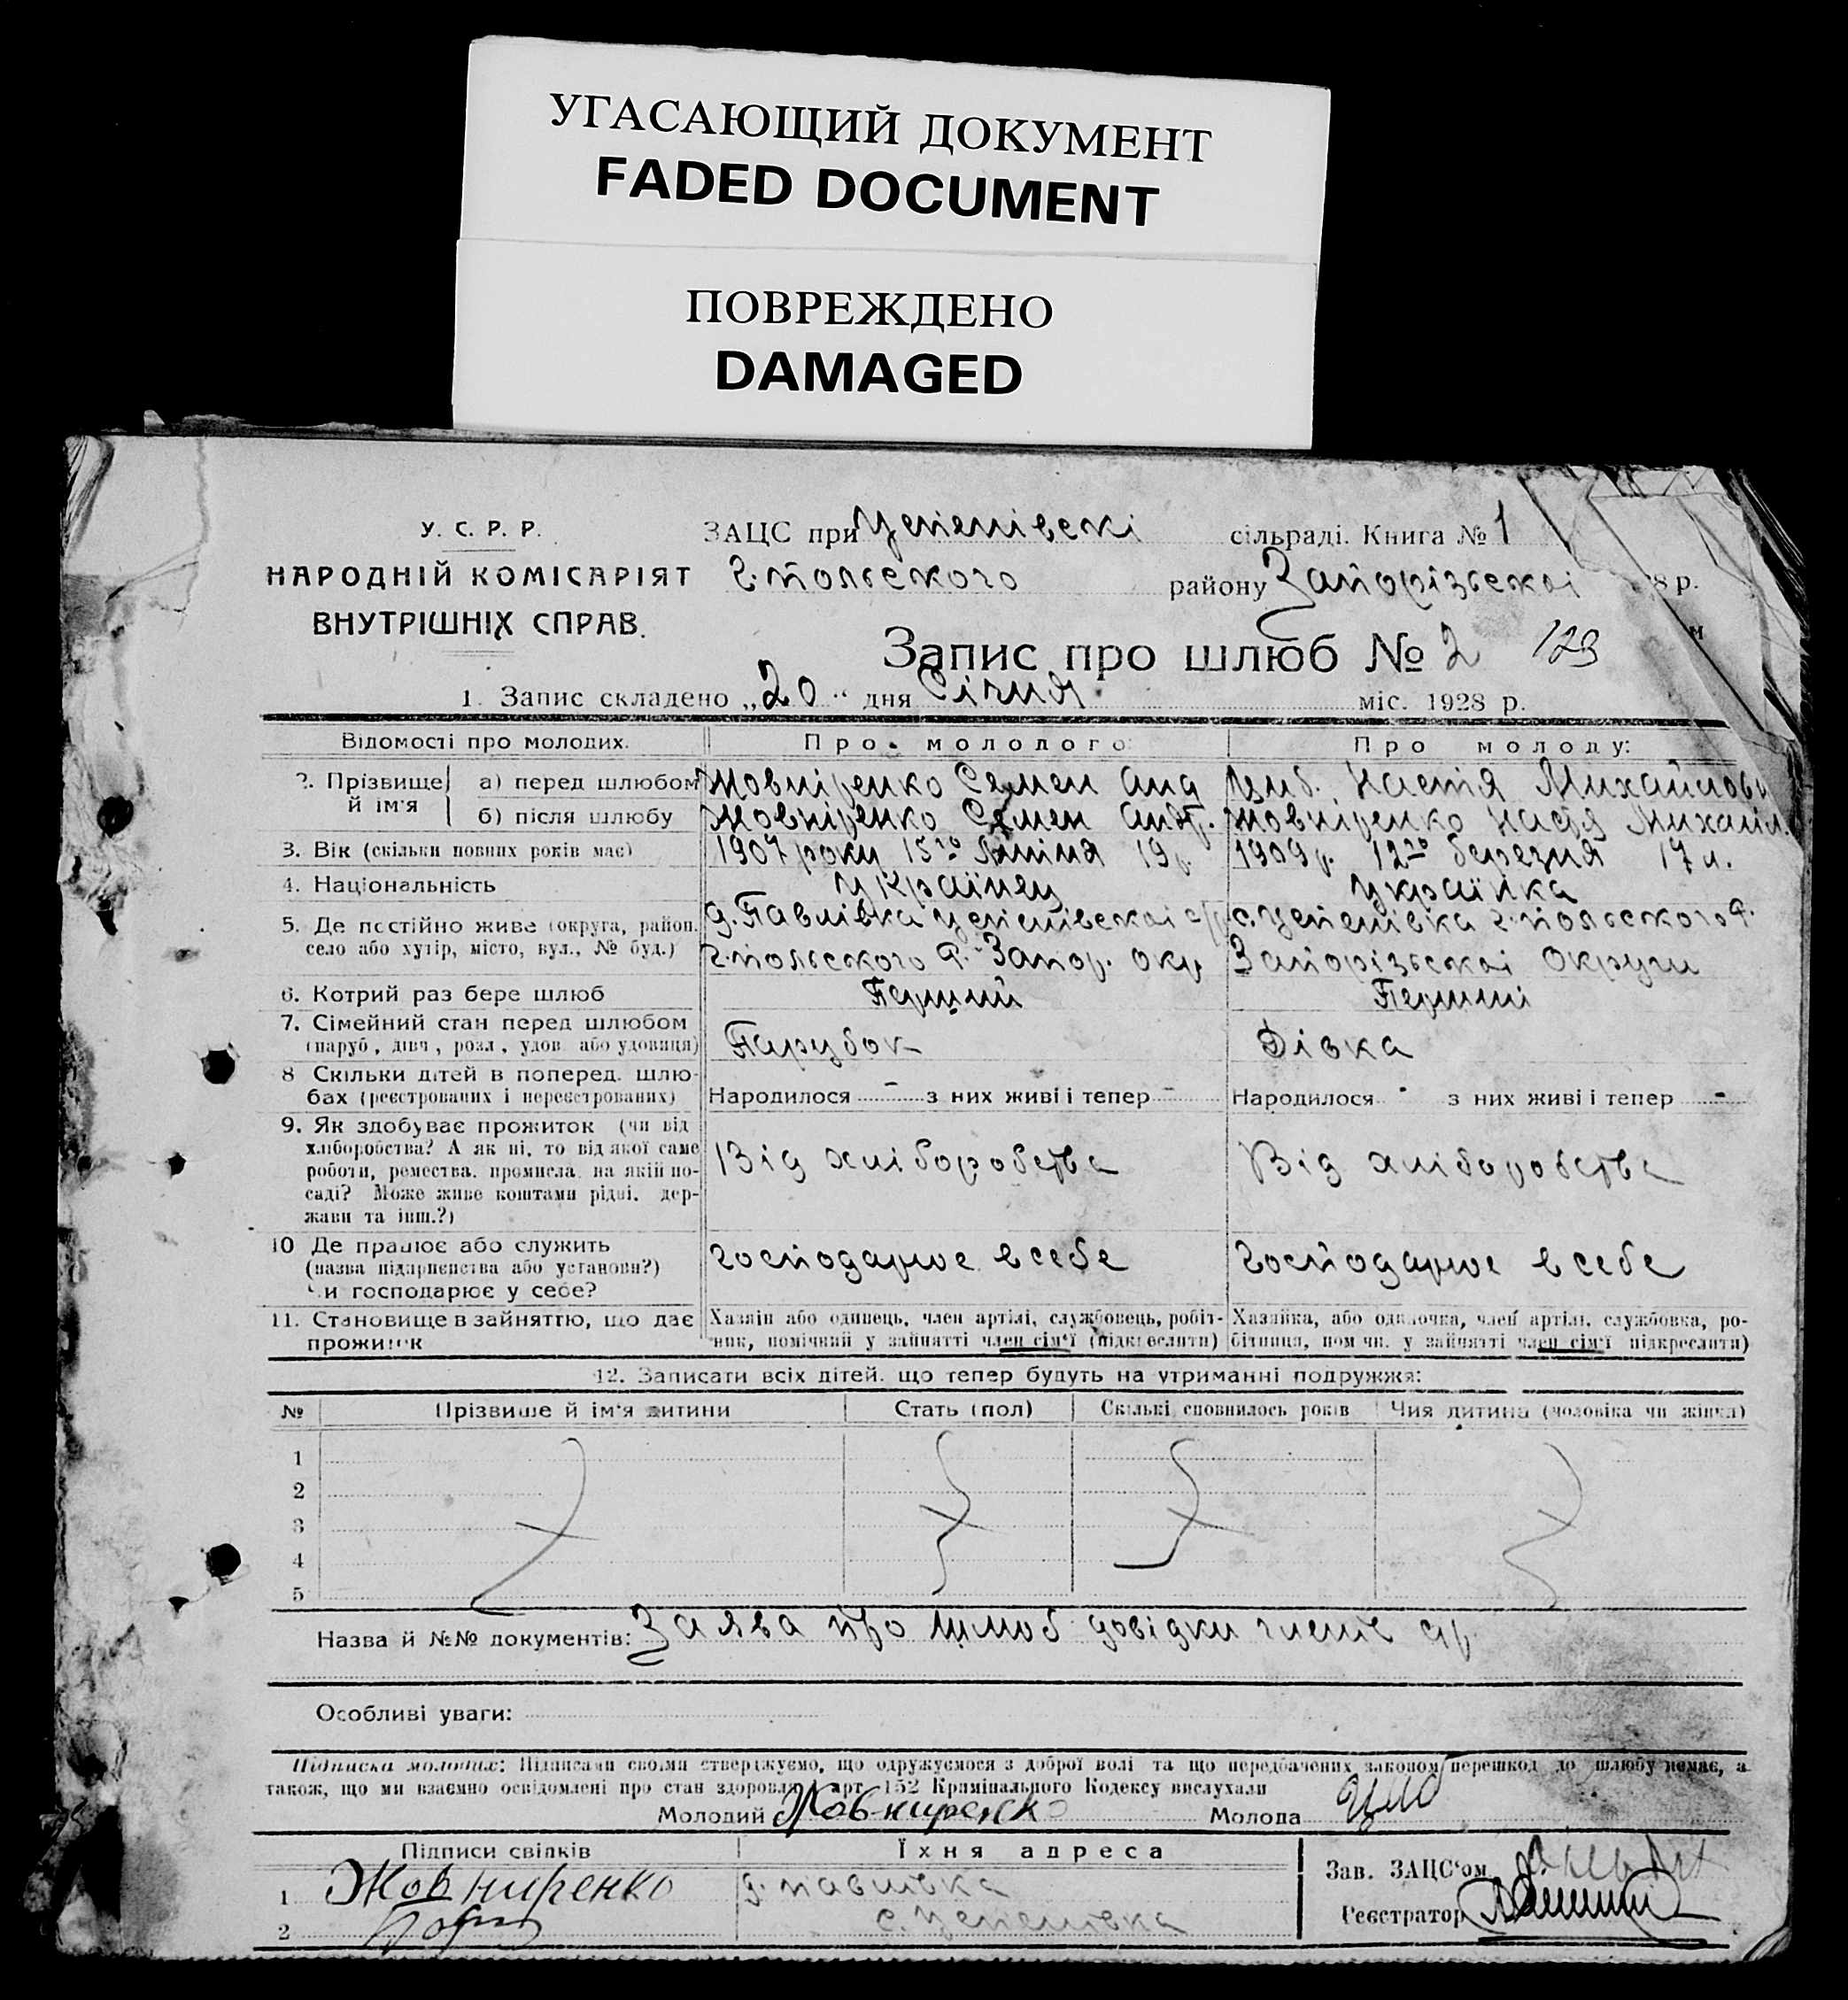 УГАСАЮЩИЙ ДОКУМЕНТ
FADED DOCUMENT
ПОВРЕЖДЕНО
DAMAGED
У. С. Р. Р.
НАРОДНІЙ КОМІСАРІЯТ
ВНУТРІШНІХ СПРАВ.
ЗАЦС при сільраді. Книга № 1
г.польского району Запорізської 8 р.
Запис про шлюб № 2 123
1. Запис складено „20“ дня Січня міс. 1928 р.
Відомості про молодих. Про молодого: Про молоду:
2. Прізвище й ім'я
а) перед шлюбом Жовніренко Семен Анд Циб. Настя Михайлов
б) після шлюбу Жовніренко Семен Андр. Жовніренко Настя Михайл.
3. Вік (скільки повних років має) 1907 року 15го Липня 19р. 1909р. 12го березня 17 л.
4. Національність Українец Українка
5. Де постійно живе (округа, район,
село або хутір, місто, вул., № буд.)
д. Павлівка с/р
г.польского р. Запор. окр
с. г.польского р.
Запорізської Округи
6. Котрий раз бере шлюб Перший Перший
7. Сімейний стан перед шлюбом
(паруб., дівч., розл., удов. або удовиця) Парубок Дівка
8 Скільки дітей в поперед. шлю-
бах (реєстрованих і нереєстрованих) Народилося - з них живі і тепер - Народилося - з них живі і тепер -
9. Як здобуває прожиток (чи від
хліборобства? А як ні, то від якої саме
роботи, ремества, промисла, на якій по-
саді? Може живе коштами рідні, дер-
жави та інш.?)
Від хліборобства Від хліборобства
10 Де працює або служить
(назва підприємства або установи?)
Чи господарює у себе?
господарює в себе господарює в себе
11. Становище в зайняттю, що дає
прожиток
Хазяїн або одинець, член артілі, службовець, робіт-
ник, помічний у зайнятті член сім'ї (підкреслити)
Хазяйка, або одиночка, член артілі, службовка, ро-
бітниця, пом чн. у зайнятті член сім'ї підкреслити)
12. Записати всіх дітей, що тепер будуть на утриманні подружжя:
№ Прізвище й ім'я дитини Стать (пол) Скількі сповнилось років Чия дитина (чоловіка чи жінки)
1
2
3
4
5
Назва й №№ документів: Заява про шлюб довідки
Особливі уваги:
Підписка молодих: Підписами своїми стверджуємо, що одружуємося з доброї волі та що передбачених законом перешкод до шлюбу немає, а
також, що ми взаємно освідомлені про стан здоровля і арт. 152 Крамінального Кодексу вислухали
Молодий Жовниренко Молода
Підписи свідків Їхня адреса
1 Жовниренко д. павлівка
2
Зав. ЗАЦС'ом
Реєстратор